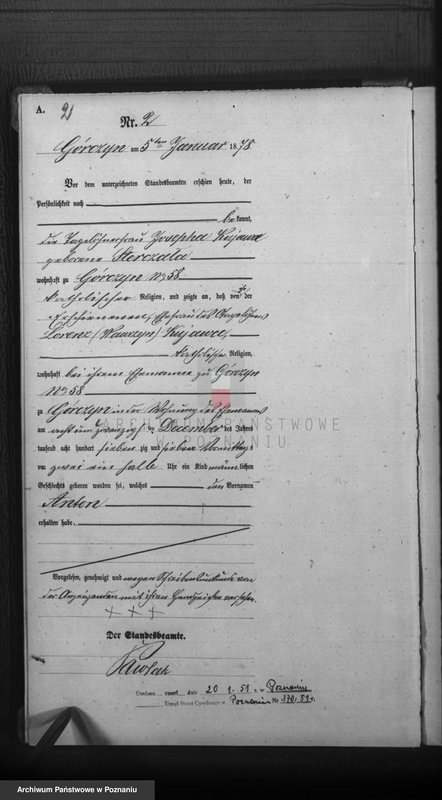 A. 2
Nr. 2
Górczyn am 5ten Januar 1878
Vor dem unterzeichneten Standesbeamten erschien heute, der
Persönlichkeit nach
bekannt,
die Tagelöhnerfrau Josepha Kujawa
geborene
wohnhaft zu Górczyn No 58
katholischer Religion, und zeigte an, daß von der
Erschienenen, Ehefrau des
Lorenz (Wawrzyn) Kujawa,
katholischer Religion,
wohnhaft bei ihrem Ehemanne zu Górczyn
No 58
zu Górczyn in der Wohnung des Ehemannes
am acht und zwanzigsten December des Jahres
tausend acht hundert sieben zig und sieben Vormittags
um zwei ein halb Uhr ein Kind männlichen
Geschlechts geboren worden sei, welches den Vornamen
Anton
erhalten habe.
ARCHIWUM PAŃSTWOWE
W POZNANIU
Vorgelesen, genehmigt und wegen Schreibensunkunde von
der Anzeigenden mit ihrem Handzeichen versehen.
+ + +
Der Standesbeamte.
Pawlak
dnia 20 1. 51 r. w Poznaniu
Urząd Stanu Cywilnego w Poznaniu Nr 370/51 r.
Archiwum Państwowe w Poznaniu